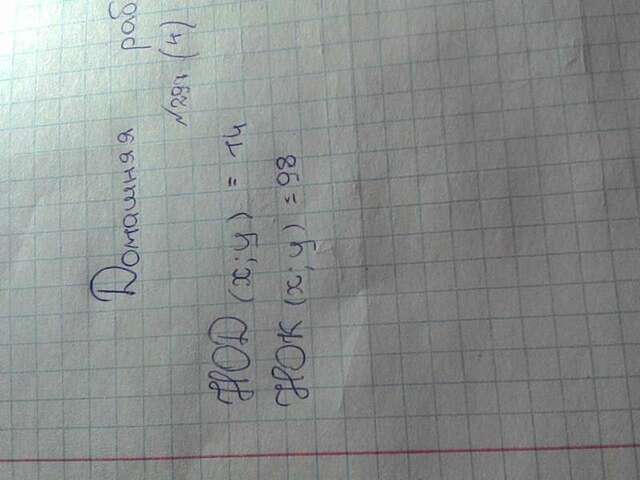 Домашняя раб
№297 (4)
НОД (x; y) = 14
НОК (x; y) = 98